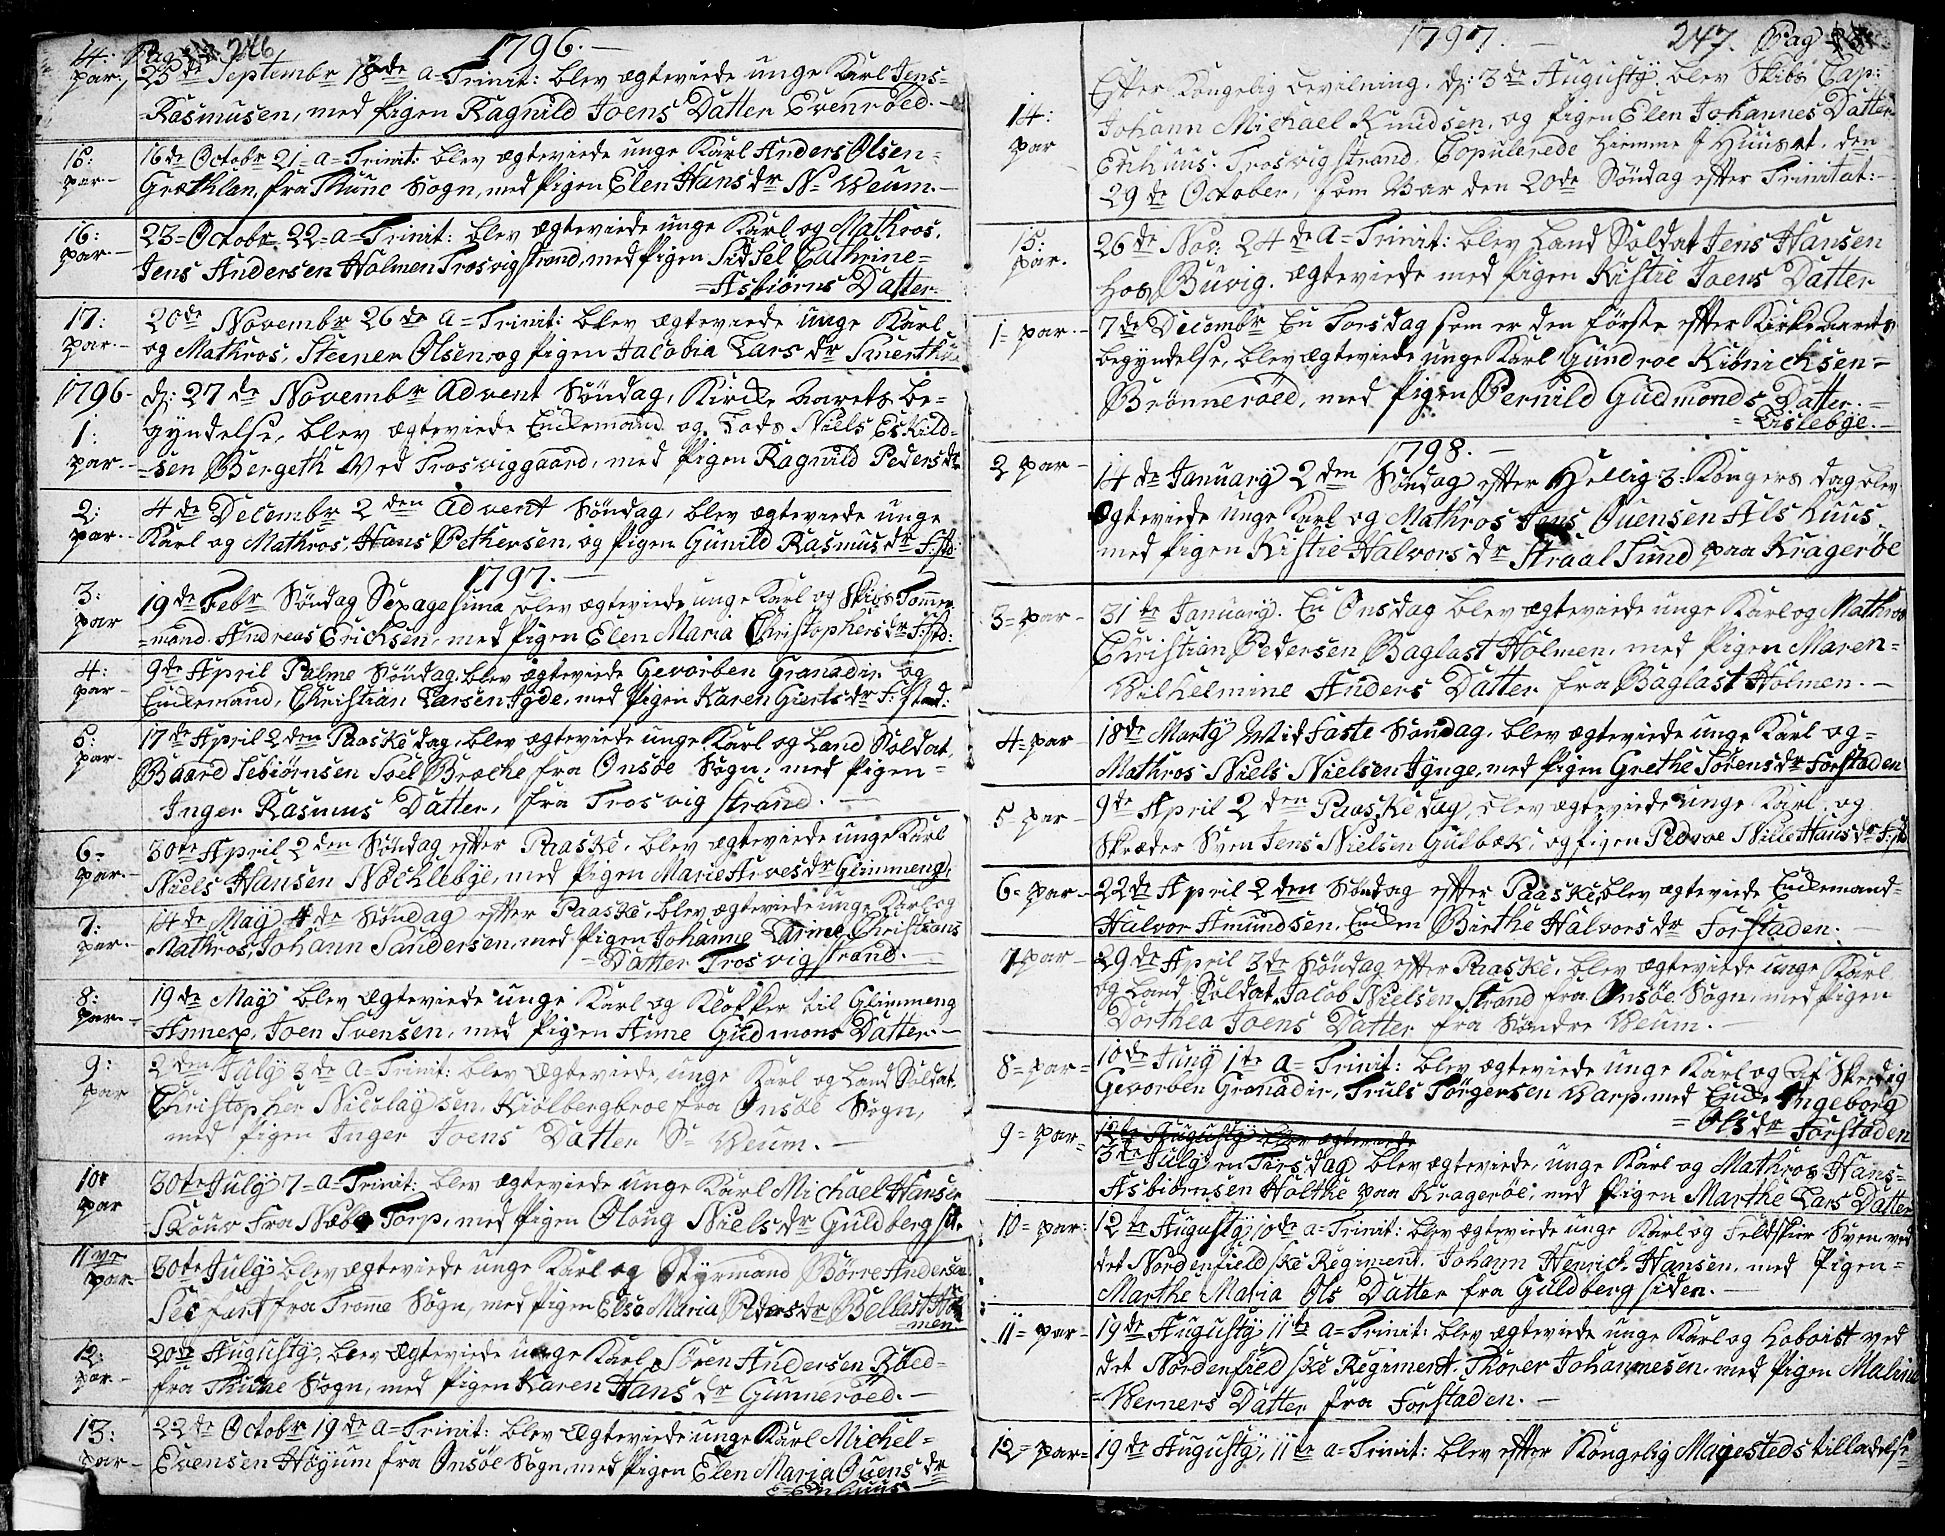 Pag 246
1796.
14. par.
25de Septembr 18de a=Trinit: blev ægteviede unge Karl Jens-
Rasmusen, med Pigen Ragnild Joens Datter Evenrøed.
15: par-
16de Octobr 21=a=Trinit: blev ægteviede unge Karl Anders Olsen-
Græthlen, fra Thune Sogn, med Pigen Elen Hans dr No Weum.-
16: par-
23=Octobr 22=a=Trinit: blev ægteviede unge Karl og Mathros,
Jens Andersen Holmen Trosvig strand, med Pigen Sidsel Cathrine=
=Asbiørns Datter.
17: par-
20de Novembr 26de a=Trinit: blev ægteviede unge Karl
og Mathros, Steener Olsen, og Pigen Jacobia Lars dr
1796-
1: par-
d: 27de Novembr Advent Søndag, Kircke Aarets be-
gyndelse, blev ægteviede Enckemand og Lods Niels Eskild-
-sen Bergeth Ved Trosviggaard, med Pigen Ragnild Peders dr
2: par-
4de Decembr 2den Advent Søndag, blev ægteviede unge
Karl og Mathros, Hans Pethersen, og Pigen Gunild Rasmus dr F:std
1797.-
3: par
19de Febr Søndag Sexagesima blev ægteviede unge Karl og Skibs Tømmer
=mand. Andreas Erichsen, med Pigen Elen Maria Christophers dr F:std:
4: par-
9de April Palme Søndag, blev ægteviede Gevorben Granadir og
Enckemand, Christian Larsen Igde, med Pigen Karen Gierts dr F: stad:
5: par-
17de April 2den Paaske dag, blev ægteviede unge Karl og Land Soldat,
Baard Sebiørnsen Soel Bræche, fra Onsøe Sogn, med Pigen=
Inger Rasmus Datter, fra Trosvig strand.-
6- par-
30te April 2den Søndag efter Paaske, blev ægteviede unge Karl
Niels Hansen Nøcklebÿe, med Pigen Marie Arves dr Glimmeng,
7: par-
14de Maÿ 4de Søndag efter Paaske, blev ægteviede unge Karl og
Mathros, Johann Sandersen, med Pigen Johanne Carine Christians
=Datter Trosvig strand.-
8: par-
19de Maÿ blev ægteviede unge Karl og Klokker til Glimmeng
Annex, Joen Svensen, med Pigen Anne Gudmons Datter-
9: par
2den Julÿ 3de a=Trinit: blev ægteviede, unge Karl og Land Soldat,
Christopher Nicolaÿsen, Kiølbergbroe fra Onsøe Sogn,
med Pigen Inger Joens Datter Sr Weum.-
10: par
30te Julÿ 7=a=Trinit: blev ægteviede unge Karl Michael Hansen
Skour fra Næb Torp, med Pigen Oloug Niels dr Guldberg sit.
11ve par-
30te Julÿ blev ægteviede unge Karl og Stÿrmand Børre Andersen
fra Tromø Sogn, med Pigen Else Maria Peders dr Bellast Hol
=men
12: par-
20de Augustÿ, blev ægteviede unge Karl, Søren Andersen
fra Thune Sogn, med Pigen Karen Hans dr Gunnerøed.-
13: par-
22de Octobr 19de a=Trinit: blev ægteviede unge Karl Michel=
Evensen Høgum fra Onsøe Sogn, med Pigen Elen Maria Ouens dr
=Enhuus
1797.-
247. Pag
14: par
Efter Kongelig bevilning, d: 3de Augustÿ, blev Skibs Cap:
Johann Michael Knudsen, og Pigen Elen Johannes Datter
Enhuus. Trosvig strand, Copulerede hiemme J Huuset, den
29de October, som Var den 20de Søndag efter Trinitat:-
15: par.
26de Nov: 24de a=Trinit: blev Land Soldat Jens Hansen
hos Buvig. ægteviede med Pigen Kistie Joens Datter
1= par-
7de Decembr En Torsdag som er den første efter Kirke aarets
begyndelse, blev ægteviede unge Karl Gundroe Kiønicksen=
Brønnerøed, med Pigen Pernild Gudmonds Datter.=
=Lislebÿe.-
1798.-
2 par-
14de Januarÿ 2den Søndag efter Hellig 3 Kongers dag blev
ægteviede unge Karl og Mathros Jens Ouensen Als huus,
med Pigen Kistie Halvors dr Straal sund paa Kragerøe
3= par-
31te Januarÿ. En Onsdag blev ægteviede unge Karl og Mathros
Christian Pedersen Baglast Holmen, med Pigen Maren=
Wilhelmine Anders Datter fra Baglast Holmen.-
4= par
18de Martÿ Mid faste Søndag, blev ægteviede unge Karl og=
Mathros Niels Nielsen Iÿnge, med Pigen Grethe Sørens dr Forstaden
5 par-
9de April 2den Paaske dag, blev ægteviede unge Karl og
Skræder Sven Jens Nielsen Gulbæk, og Pigen Pedroe Nille Hans dr F:std
6= par-
22de April 2den Søndag efter Paaske, blev ægteviede Enckemand=
Halvor Amundsen, Encken Birthe Halvors dr Forstaden.
7 par-
29de April 3de Søndag efter Paaske, blev ægteviede unge Karl
og Land Soldat, Jacob Nielsen Strand fra Onsøe Sogn, med Pigen
Dorthea Joens Datter fra Søndre Weum.-
8= par=
10de Junÿ 1te a=Trinit: blev ægteviede unge Karl og af Skeedig
Gevorben Granadir, Truls Tørgersen Varp, med Encke Ingeborg
=Ols dr Forstaden
9= par=
12te Augustÿ blev ægteviede
3de Julÿ en Tirsdag blev ægteviede, unge Karl og Mathros Hans=
Asbiørnsen Holthe paa Kragerøe, med Pigen Marthe Lars Datter
10= par=
12te Augustÿ 10de a=Trinit: blev ægteviede unge Karl og Feldskier Sven ved
det Nordenfield ske Regiment, Johann Henrich Hansen, med Pigen=
Marthe Maria Ols Datter fra Guldberg siden.-
11= par-
19de Augustÿ 11te a=Trinit: blev ægteviede unge Karl og hoboist ved
det Nordenfield ske Regiment. Thorer Johannesen, med Pigen Malene
=Werners Datter fra Forstaden.-
12= par=
19de Augustÿ, 11te a=Trinit: blev efter Kongelig Majesteds tilladelse